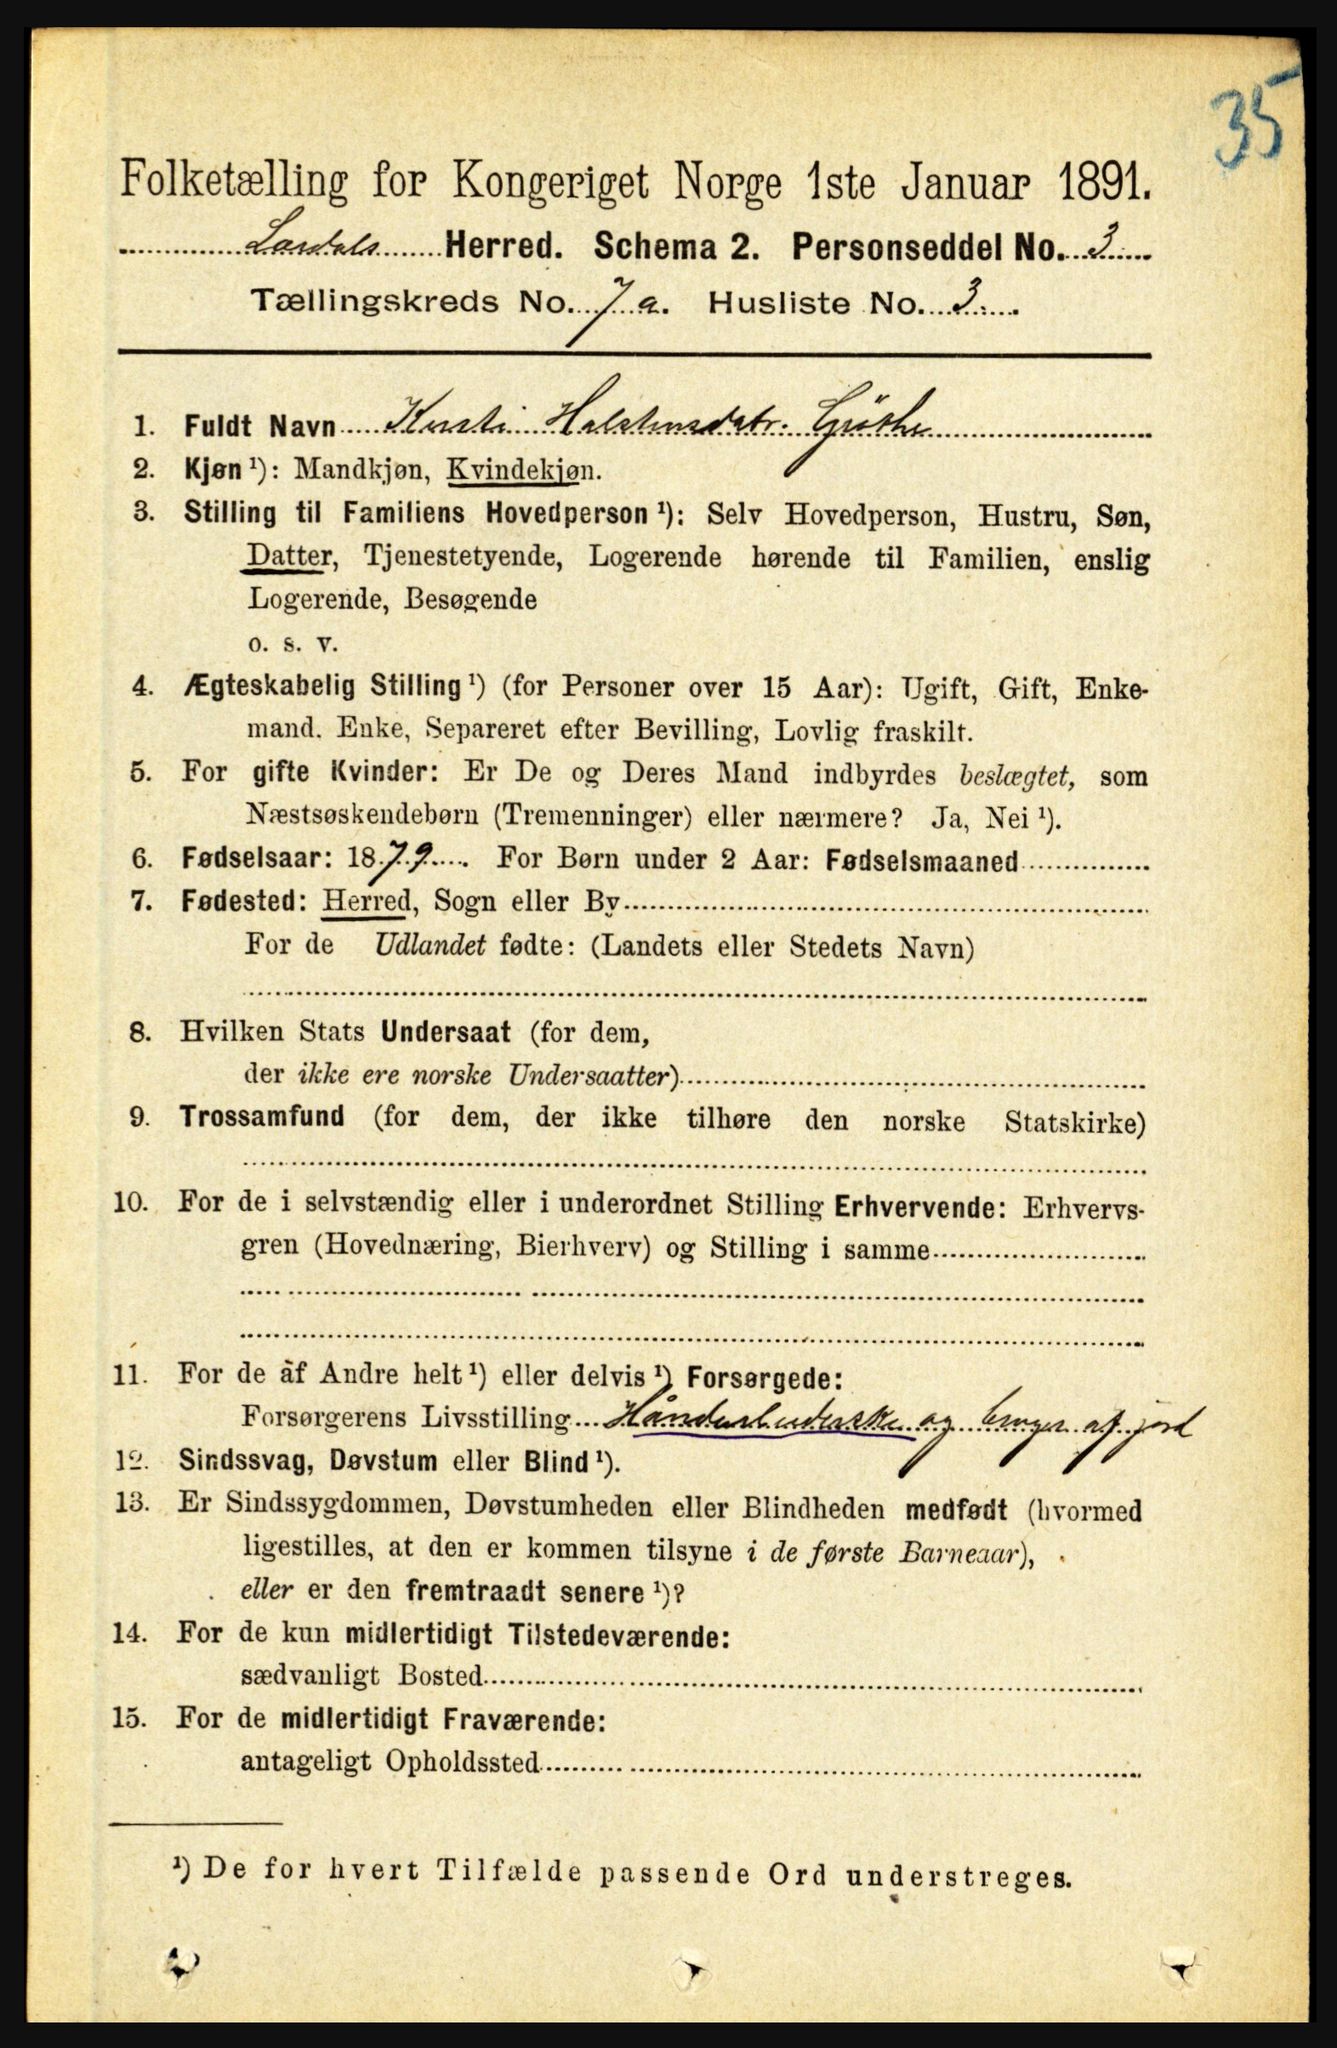 35
Folketælling for Kongeriget Norge 1ste Januar 1891.
Lærdals Herred. Schema 2. Personseddel No. 3
Tællingskreds No. 7 a. Husliste No. 3.
1. Fuldt Navn Kirsti Halstensdatr. Grøthe
2. Kjøn ¹): Mandkjøn, Kvindekjøn.
3. Stilling til Familiens Hovedperson ¹): Selv Hovedperson, Hustru, Søn,
Datter, Tjenestetyende, Logerende hørende til Familien, enslig
Logerende, Besøgende
o. s. v.
4. Ægteskabelig Stilling ¹) (for Personer over 15 Aar): Ugift, Gift, Enke-
mand. Enke, Separeret efter Bevilling, Lovlig fraskilt.
5. For gifte Kvinder: Er De og Deres Mand indbyrdes beslægtet, som
Næstsøskendebørn (Tremenninger) eller nærmere? Ja, Nei ¹).
6. Fødselsaar: 1879. For Børn under 2 Aar: Fødselsmaaned
7. Fødested: Herred, Sogn eller By
For de Udlandet fødte: (Landets eller Stedets Navn)
8. Hvilken Stats Undersaat (for dem,
der ikke ere norske Undersaatter)
9. Trossamfund (for dem, der ikke tilhøre den norske Statskirke)
10. For de i selvstændig eller i underordnet Stilling Erhvervende: Erhvervs-
gren (Hovednæring, Bierhverv) og Stilling i samme
11. For de af Andre helt ¹) eller delvis ¹) Forsørgede:
Forsørgerens Livsstilling og bruger af jord
12. Sindssvag, Døvstum eller Blind ¹).
13. Er Sindssygdommen, Døvstumheden eller Blindheden medfødt (hvormed
ligestilles, at den er kommen tilsyne i de første Barneaar),
eller er den fremtraadt senere ¹)?
14. For de kun midlertidigt Tilstedeværende:
sædvanligt Bosted
15. For de midlertidigt Fraværende:
antageligt Opholdssted
¹) De for hvert Tilfælde passende Ord understreges.